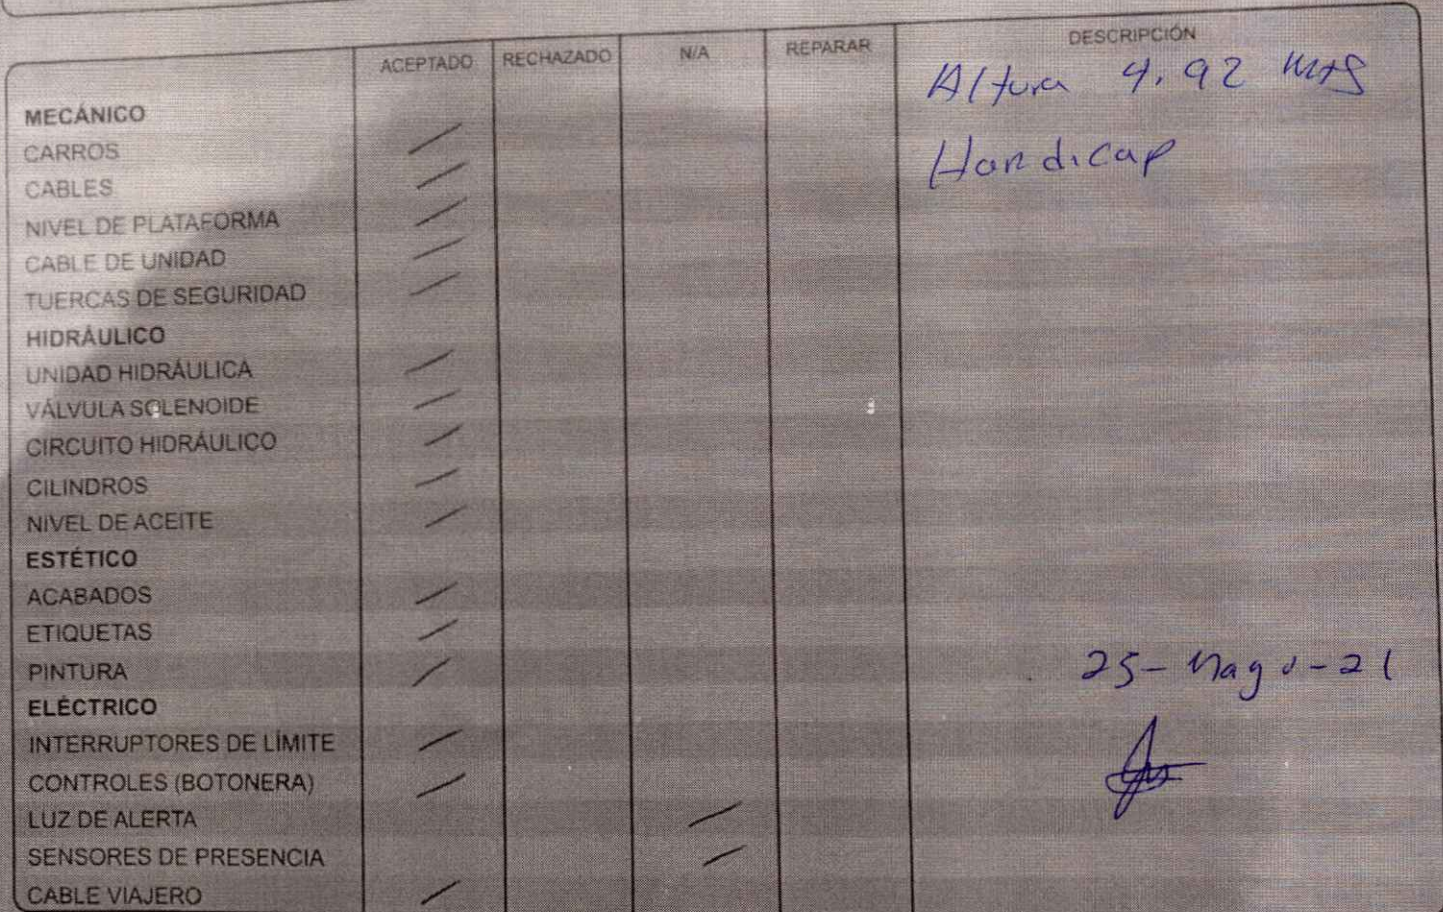 ACEPTADO RECHAZADO N/A REPARAR DESCRIPCIÓN
Altura 4.92 mts
MECÁNICO
CARROS
Handicap
CABLES
NIVEL DE PLATAFORMA
CABLE DE UNIDAD
TUERCAS DE SEGURIDAD
HIDRÁULICO
UNIDAD HIDRÁULICA
VÁLVULA SOLENOIDE
CIRCUITO HIDRÁULICO
CILINDROS
NIVEL DE ACEITE
ESTÉTICO
ACABADOS
ETIQUETAS
PINTURA
25-Mayo-21
ELÉCTRICO
INTERRUPTORES DE LÍMITE
CONTROLES (BOTONERA)
LUZ DE ALERTA
SENSORES DE PRESENCIA
CABLE VIAJERO